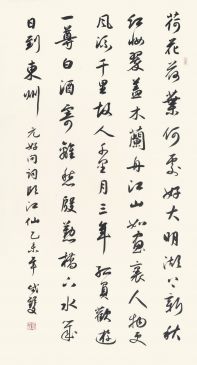 荷花荷葉何處好大明湖上新秋
紅妝翠蓋木蘭舟江山如畫裏人物更
風流千里故人千里月三年孤負歡遊
一尊白酒寄離愁殷勤橋下水幾
日到東州 元好問詞臨江仙乙未年